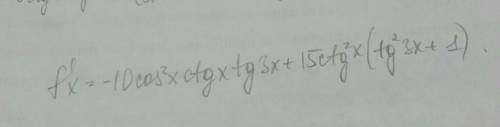 f'x = -10cos²x ctgx tg3x + 15ctg²x (tg²3x + 1).